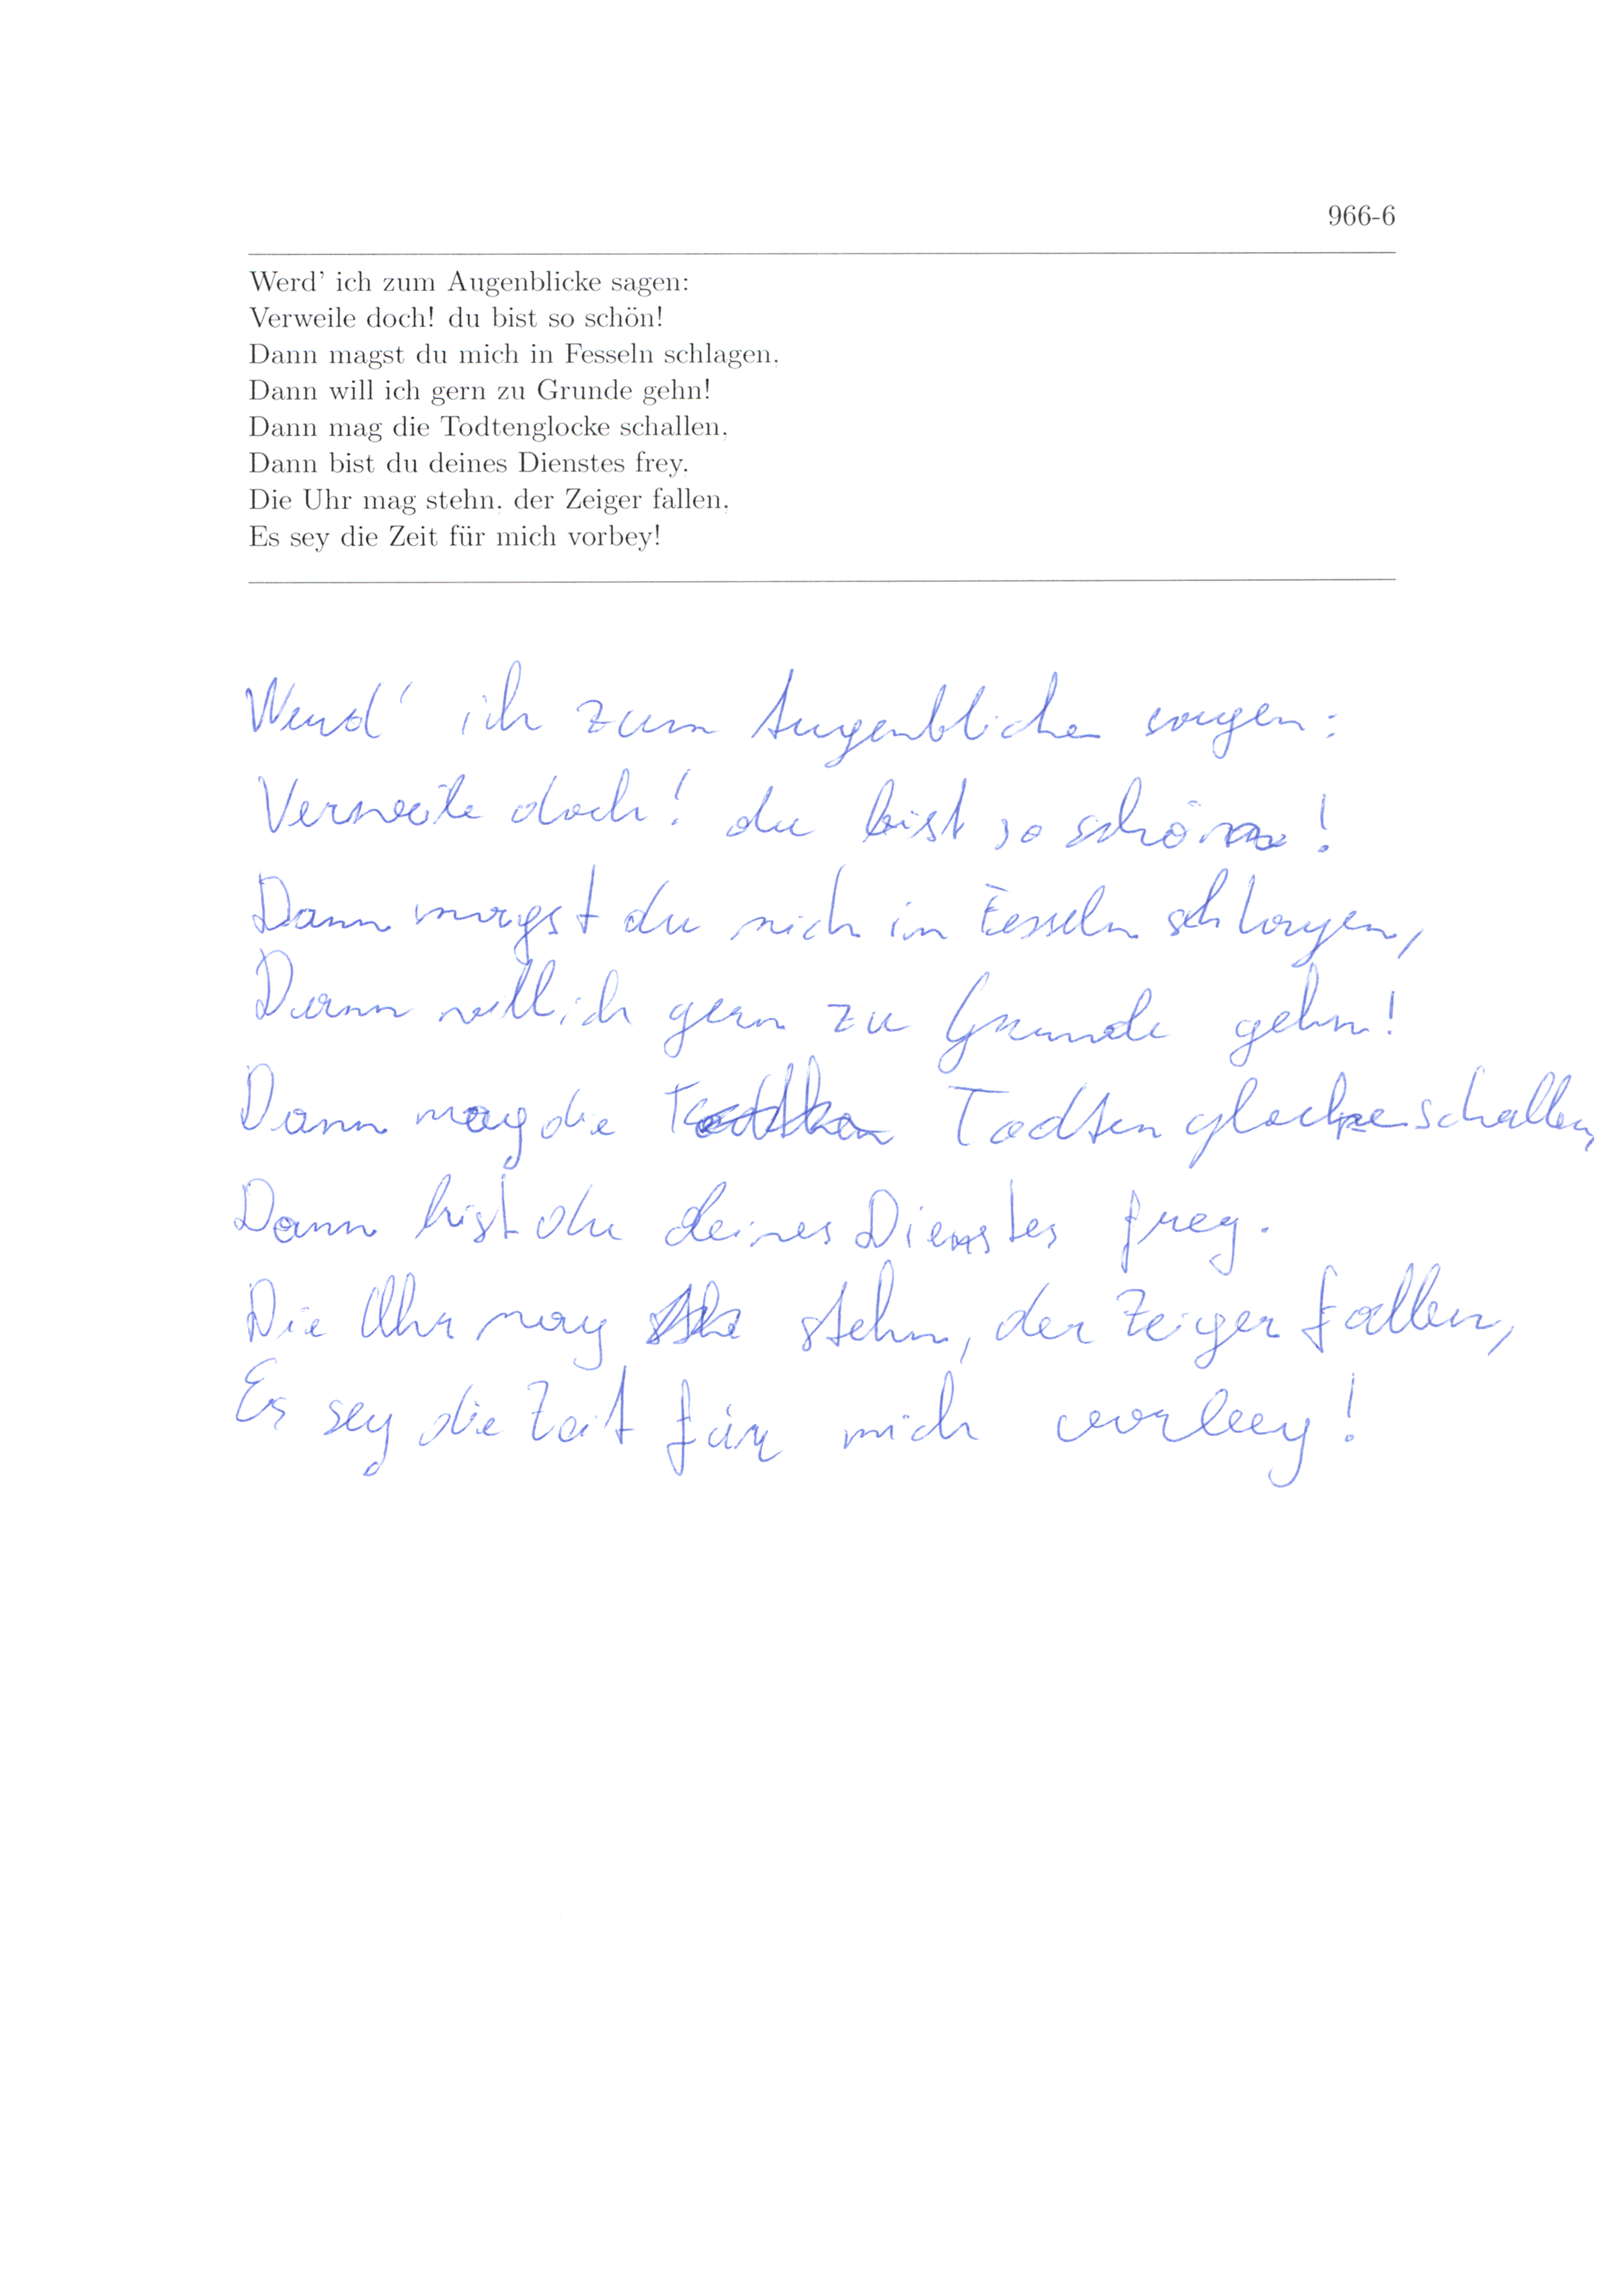 966-6
Werd' ich zum Augenblicke sagen:
Verweile doch! du bist so schön!
Dann magst du mich in Fesseln schlagen,
Dann will ich gern zu Grunde gehn!
Dann mag die Todtenglocke schallen,
Dann bist du deines Dienstes frey.
Die Uhr mag stehn, der Zeiger fallen,
Es sey die Zeit für mich vorbey!
Werd' ich zum Augenblicke sagen:
Verweile doch! du bist so schön!
Dann magst du mich in Fesseln schlagen,
Dann will ich gern zu Grunde gehn!
Dann mag die Todtenglocke schallen,
Dann bist du deines Dienstes frey.
Die Uhr mag stehn, der Zeiger fallen,
Es sey die Zeit für mich vorbey!